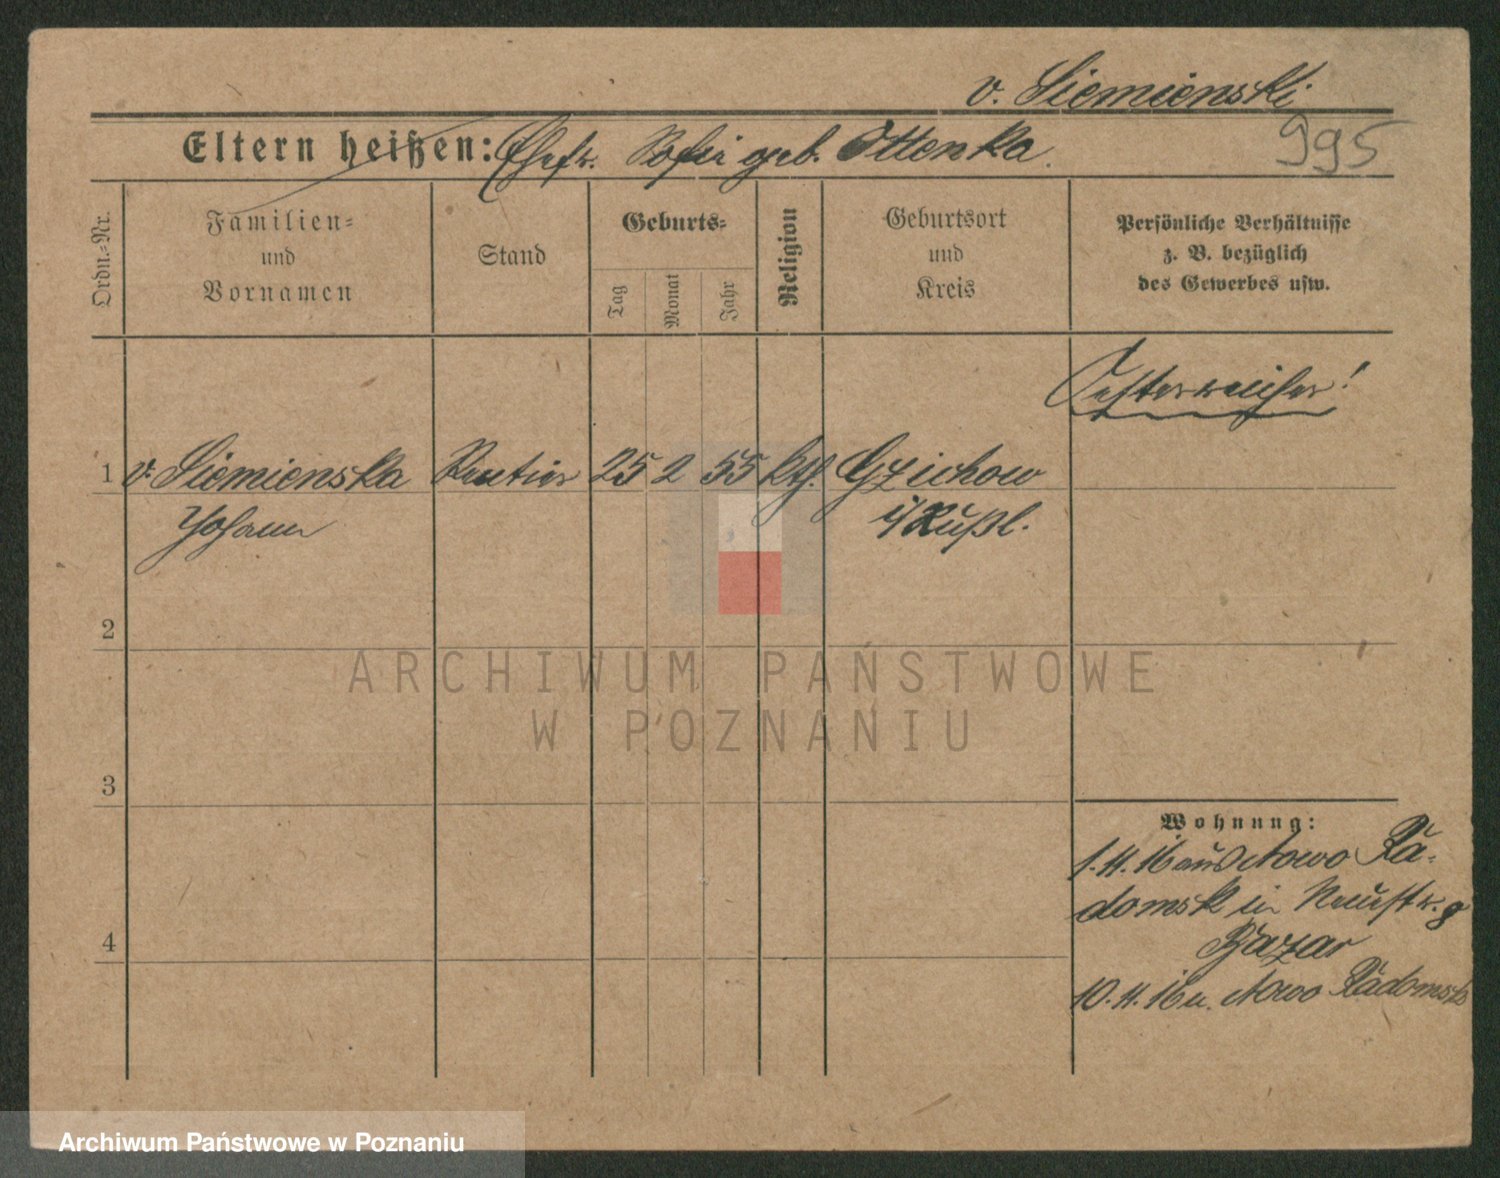 v. Siemienski
995
Eltern heißen: Ehefr. Sofie geb. Ottenka.
Ordn.-Nr.
Familien-
und
Vornamen
Stand
Geburts-
Tag
Monat
Jahr
Religion
Geburtsort
und
Kreis
Persönliche Verhältnisse
z. B. bezüglich
des Gewerbes usw.
Oesterreicher!
1 v. Siemienska Rentier 25 2 55 kth. Gzichow
Johann i/Rußl.
2
ARCHIWUM PAŃSTWOWE
W POZNANIU
3
Wohnung:
1.4.16 aus Nowo Ra-
domsk in Neustr. 8
Bazar
4
10.4.16 n. Nowo Radomsk
Archiwum Państwowe w Poznaniu